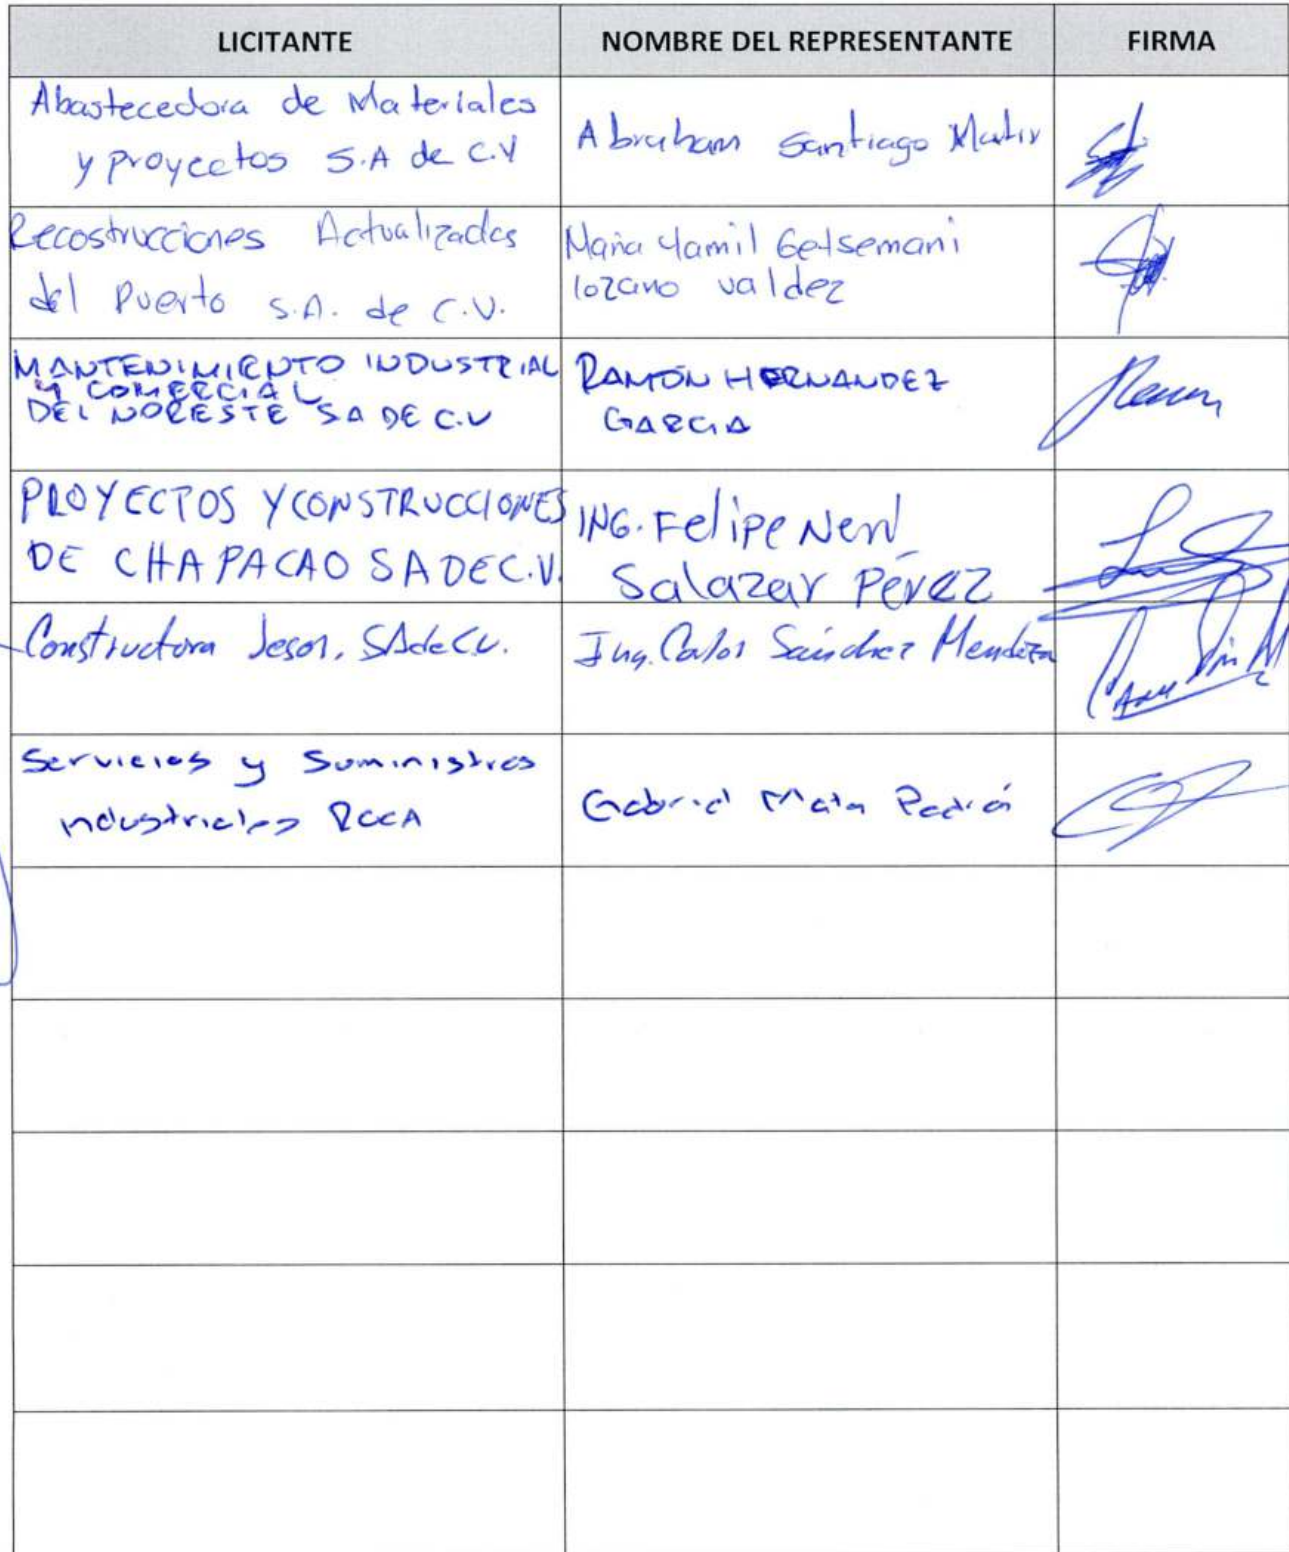 LICITANTE NOMBRE DEL REPRESENTANTE FIRMA
Abastecedora de Materiales
y proyectos S.A de C.V
Abraham Santiago
Recostrucciones Actualizadas
del Puerto S.A. de C.V.
Maria Yamil Getsemani
lozano valdez
MANTENIMIENTO INDUSTRIAL
Y COMERCIAL
DEL NORESTE SA DE C.V
RAMÓN HERNANDEZ
GARCIA
PROYECTOS Y CONSTRUCCIONES
DE CHAPACAO SA DE C.V.
ING. Felipe Neri
Salazar Pérez
Constructora SA de C.V.
Ing. Carlos Sánchez Mendoza
Servicios y Suministros
industriales
Gabriel Mata